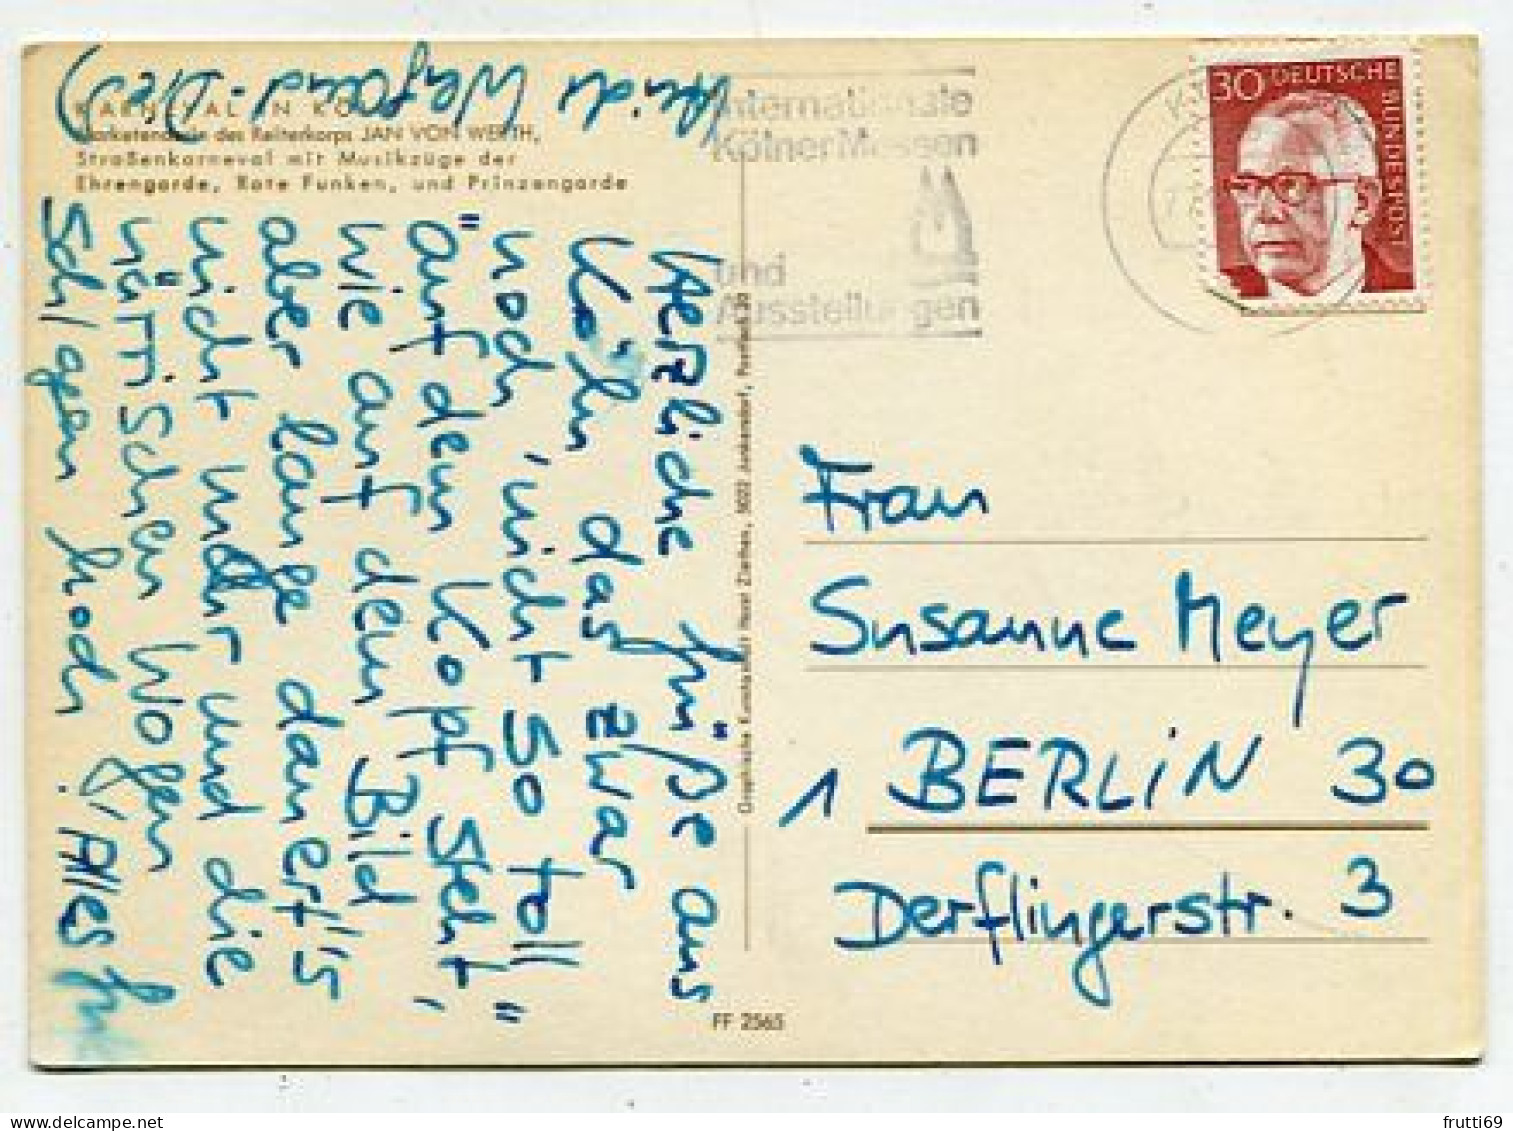 KARNEVAL IN KÖLN
Marketenderin des Reiterkorps JAN VON WERTH,
Straßenkarneval mit Musikzüge der
Ehrengarde, Rote Funken, und Prinzengarde
Herzliche Grüße aus
Köln, das zwar
noch "nicht so toll"
auf dem Kopf steht,
wie auf dem Bild,
aber lange dauert's
nicht mehr und die
närrischen Wogen
schlagen hoch! Alles
Heidi
Internationale
Kölner Messen
und
Ausstellungen
30 DEUTSCHE BUNDESPOST
Graphische Kunstanstalt Horst Ziethen, 5022 Junkersdorf, Postfach 30
Frau
Susanne Meyer
1 BERLIN 30
Derflingerstr. 3
FF 2565
frutti69